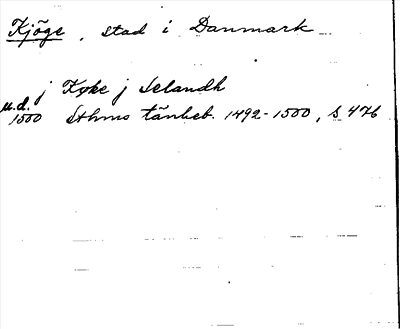 Kjöge, stad i Danmark
j Køke j Selandh
u.d.
1500 Sthms tänkeb. 1492-1500, s 476